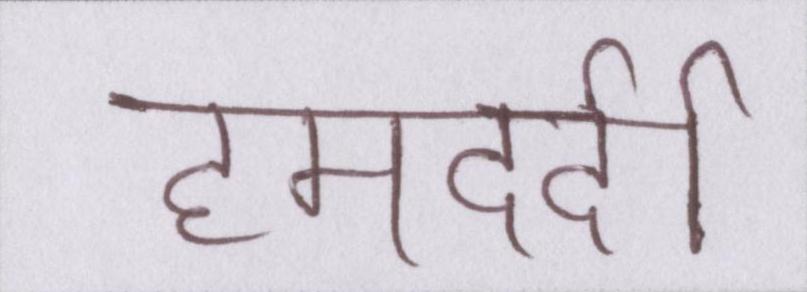 हमदर्दी